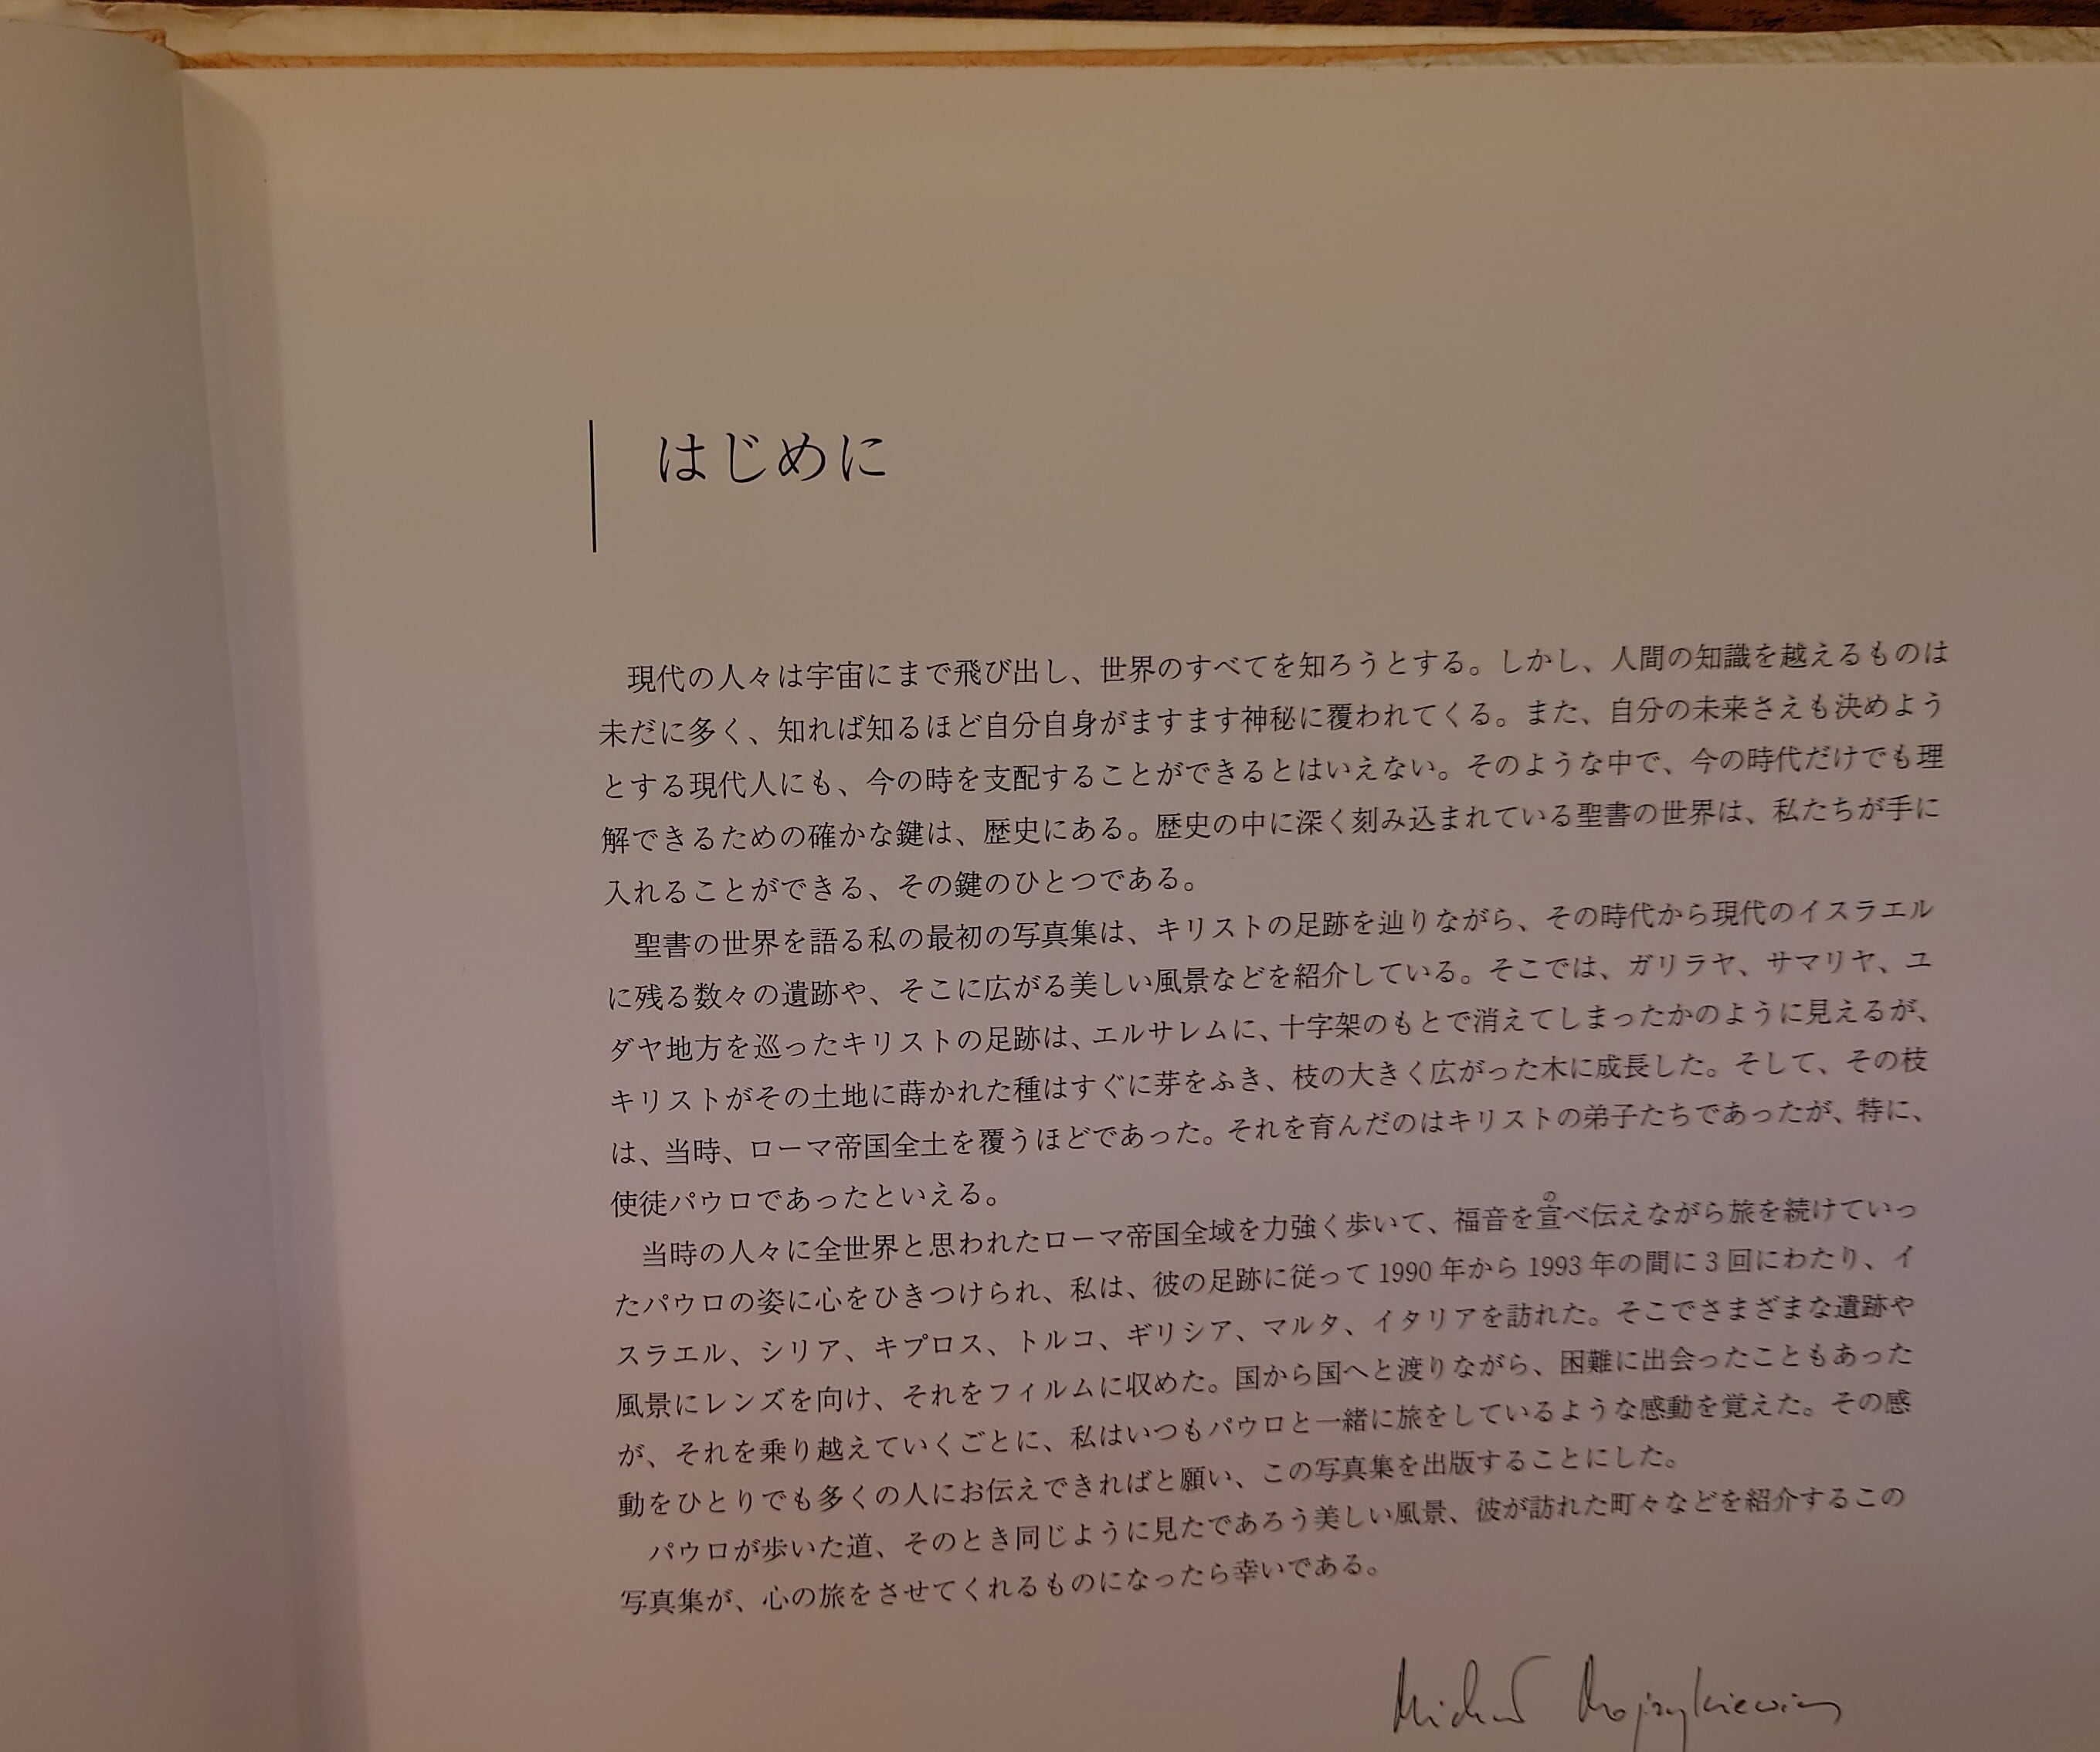 はじめに
現代の人々は宇宙にまで飛び出し、世界のすべてを知ろうとする。しかし、人間の知識を越えるものは
未だに多く、知れば知るほど自分自身がますます神秘に覆われてくる。また、自分の未来さえも決めよう
とする現代人にも、今の時を支配することができるとはいえない。そのような中で、今の時代だけでも理
解できるための確かな鍵は、歴史にある。歴史の中に深く刻み込まれている聖書の世界は、私たちが手に
入れることができる、その鍵のひとつである。
聖書の世界を語る私の最初の写真集は、キリストの足跡を辿りながら、その時代から現代のイスラエル
に残る数々の遺跡や、そこに広がる美しい風景などを紹介している。そこでは、ガリラヤ、サマリヤ、ユ
ダヤ地方を巡ったキリストの足跡は、エルサレムに、十字架のもとで消えてしまったかのように見えるが、
キリストがその土地に蒔かれた種はすぐに芽をふき、枝の大きく広がった木に成長した。そして、その枝
は、当時、ローマ帝国全土を覆うほどであった。それを育んだのはキリストの弟子たちであったが、特に、
使徒パウロであったといえる。
の
当時の人々に全世界と思われたローマ帝国全域を力強く歩いて、福音を宣べ伝えながら旅を続けていっ
たパウロの姿に心をひきつけられ、私は、彼の足跡に従って1990年から1993年の間に3回にわたり、イ
スラエル、シリア、キプロス、トルコ、ギリシア、マルタ、イタリアを訪れた。そこでさまざまな遺跡や
風景にレンズを向け、それをフィルムに収めた。国から国へと渡りながら、困難に出会ったこともあった
が、それを乗り越えていくごとに、私はいつもパウロと一緒に旅をしているような感動を覚えた。その感
動をひとりでも多くの人にお伝えできればと願い、この写真集を出版することにした。
パウロが歩いた道、そのとき同じように見たであろう美しい風景、彼が訪れた町々などを紹介するこの
写真集が、心の旅をさせてくれるものになったら幸いである。